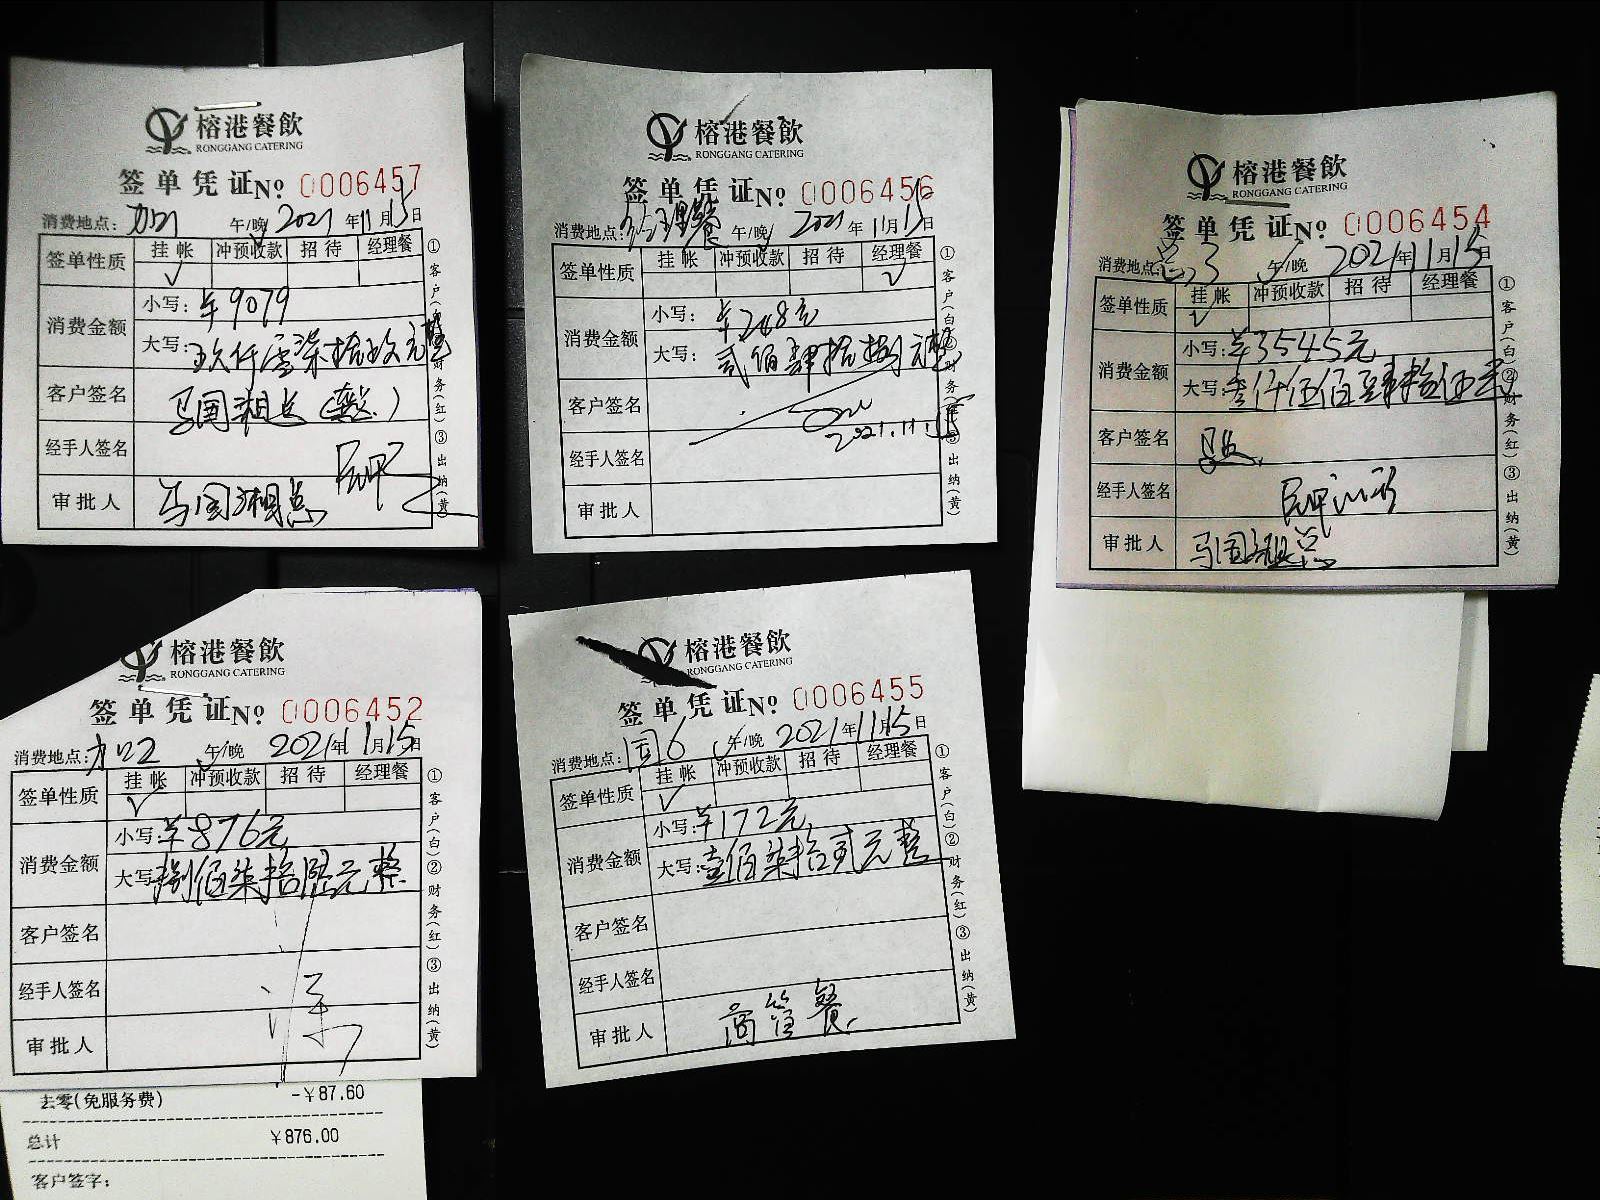 榕港餐飲
RONGGANG CATERING
签单凭证 № 0006457
消费地点: 午/晚 2021年11月15日
签单性质 挂帐 冲预收款 招待 经理餐
✓
消费金额 小写: ¥9079
大写: 玖仟零柒拾玖元整
客户签名 马国湘总
经手人签名
审批人 马国湘总
①客户(白)②财务(红)③出纳(黄)
榕港餐飲
RONGGANG CATERING
签单凭证 № 0006456
消费地点: 经理餐 午/晚 2021年11月15日
签单性质 挂帐 冲预收款 招待 经理餐
✓
消费金额 小写: ¥248元
大写: 贰佰肆拾捌元整
客户签名
2021.11.15
经手人签名
审批人
①客户(白)②财务(红)③出纳(黄)
榕港餐飲
RONGGANG CATERING
签单凭证 № 0006454
消费地点: 午/晚 2021年11月15日
签单性质 挂帐 冲预收款 招待 经理餐
✓
消费金额 小写: ¥3545元
大写: 叁仟伍佰肆拾伍元
客户签名
经手人签名
审批人 马国湘总
①客户(白)②财务(红)③出纳(黄)
榕港餐飲
RONGGANG CATERING
签单凭证 № 0006452
消费地点: 午/晚 2021年11月15日
签单性质 挂帐 冲预收款 招待 经理餐
✓
消费金额 小写: ¥876元
大写: 捌佰柒拾陆元整
客户签名
经手人签名
审批人
①客户(白)②财务(红)③出纳(黄)
去零(免服务费) -¥87.60
总计 ¥876.00
客户签字:
榕港餐飲
RONGGANG CATERING
签单凭证 № 0006455
消费地点: 国6 午/晚 2021年11月15日
签单性质 挂帐 冲预收款 招待 经理餐
✓
消费金额 小写: ¥172元
大写: 壹佰柒拾贰元整
客户签名
经手人签名
审批人 商管餐
①客户(白)②财务(红)③出纳(黄)